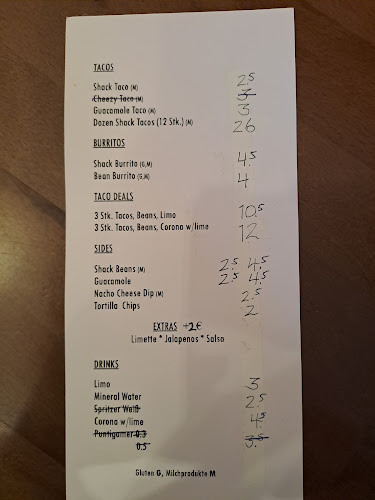 TACOS
Shack Taco (M) 2.5
Cheezy Taco (M) 3
Guacamole Taco (M) 3
Dozen Shack Tacos (12 Stk.) (M) 26
BURRITOS
Shack Burrito (G,M) 4.5
Bean Burrito (G,M) 4
TACO DEALS
3 Stk. Tacos, Beans, Limo 10.5
3 Stk. Tacos, Beans, Corona w/lime 12
SIDES
Shack Beans (M) 2.5 4.5
Guacamole 2.5 4.5
Nacho Cheese Dip (M) 2.5
Tortilla Chips 2
EXTRAS +2€
Limette * Jalapenos * Salsa
DRINKS
Limo 3
Mineral Water 2.5
Spritzer Weiß
Corona w/lime 4.5
Puntigamer 0.3
0.5 3.5
Gluten G, Milchprodukte M